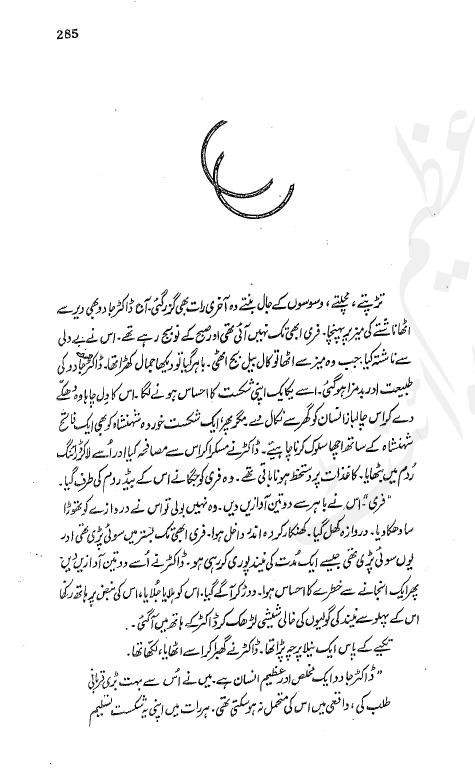 285
تڑپتے، مچلتے، وسوسوں کے جال بنتے وہ آخری رات بھی گزر گئی۔ آج ڈاکٹر جادو بھی دیر سے
اٹھا ناشتے کی میز پر پہنچا۔ فری ابھی تک نہیں آئی تھی اور صبح کے نو بج رہے تھے۔ اس نے بے دلی
سے ناشتہ کیا۔ جب وہ میز سے اٹھا تو کال بیل بج اٹھی۔ باہر گیا تو دیکھا جمال کھڑا تھا۔ ڈاکٹر جادو کی
طبیعت اور بدمزا ہو گئی۔ اسے یکایک اپنی شکست کا احساس ہونے لگا۔ اس کا دل چاہا وہ دھکے
دے کر اس چالباز انسان کو گھر سے نکال دے مگر پھر ایک شکست خوردہ شہنشاہ کو بھی ایک فاتح
شہنشاہ کے ساتھ اچھا سلوک کرنا چاہیئے۔ ڈاکٹر نے مسکرا کر اس سے مصافحہ کیا اور اُسے لا کر ڈرائنگ
رُوم میں بٹھایا۔ کاغذات پر دستخط ہونا باقی تھے۔ وہ فری کو جگانے اس کے بیڈ روم کی طرف گیا۔
"فری" اس نے باہر سے دو تین آوازیں دیں۔ وہ نہیں بولی تو اس نے دروازے کو تھوڑا
سا دھکا دیا۔ دروازہ کھل گیا۔ کھنکار کر وہ اندر داخل ہوا۔ فری ابھی تک بستر میں سوئی پڑی تھی اور
یوں سوئی پڑی تھی جیسے ایک مُدت کی نیند پوری کر رہی ہو۔ ڈاکٹر نے اُسے دو تین آوازیں دیں
پھر ایک انجانے سے خطرے کا احساس ہوا۔ دوڑ کر آگے گیا۔ اس کو ہلایا جلایا، اس کی نبض پر ہاتھ رکھا
اس کے پہلو سے نیند کی گولیوں کی خالی شیشی لڑھک کر ڈاکٹر کے ہاتھ میں آ گئی۔
تکیے کے پاس ایک نیلا پرچہ پڑا تھا۔ ڈاکٹر نے گھبرا کر اسے اٹھایا، لکھا تھا۔
"ڈاکٹر جادو ایک مخلص اور عظیم انسان ہے۔ میں نے اُس سے بہت بڑی قربانی
طلب کی، واقعی میں اس کی متحمل نہ ہو سکتی تھی۔ ہر رات میں اپنی یہ شکست تسلیم
عظیم